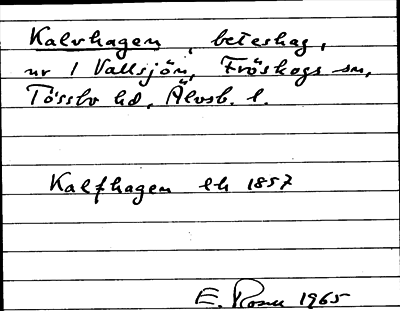 Kalvhagen, beteshag,
ur 1 Vallsjön, Fröskogs sn,
Tössbo hd, Älvsb. l.
Kalfhagen lh 1857
E. Rosn 1965